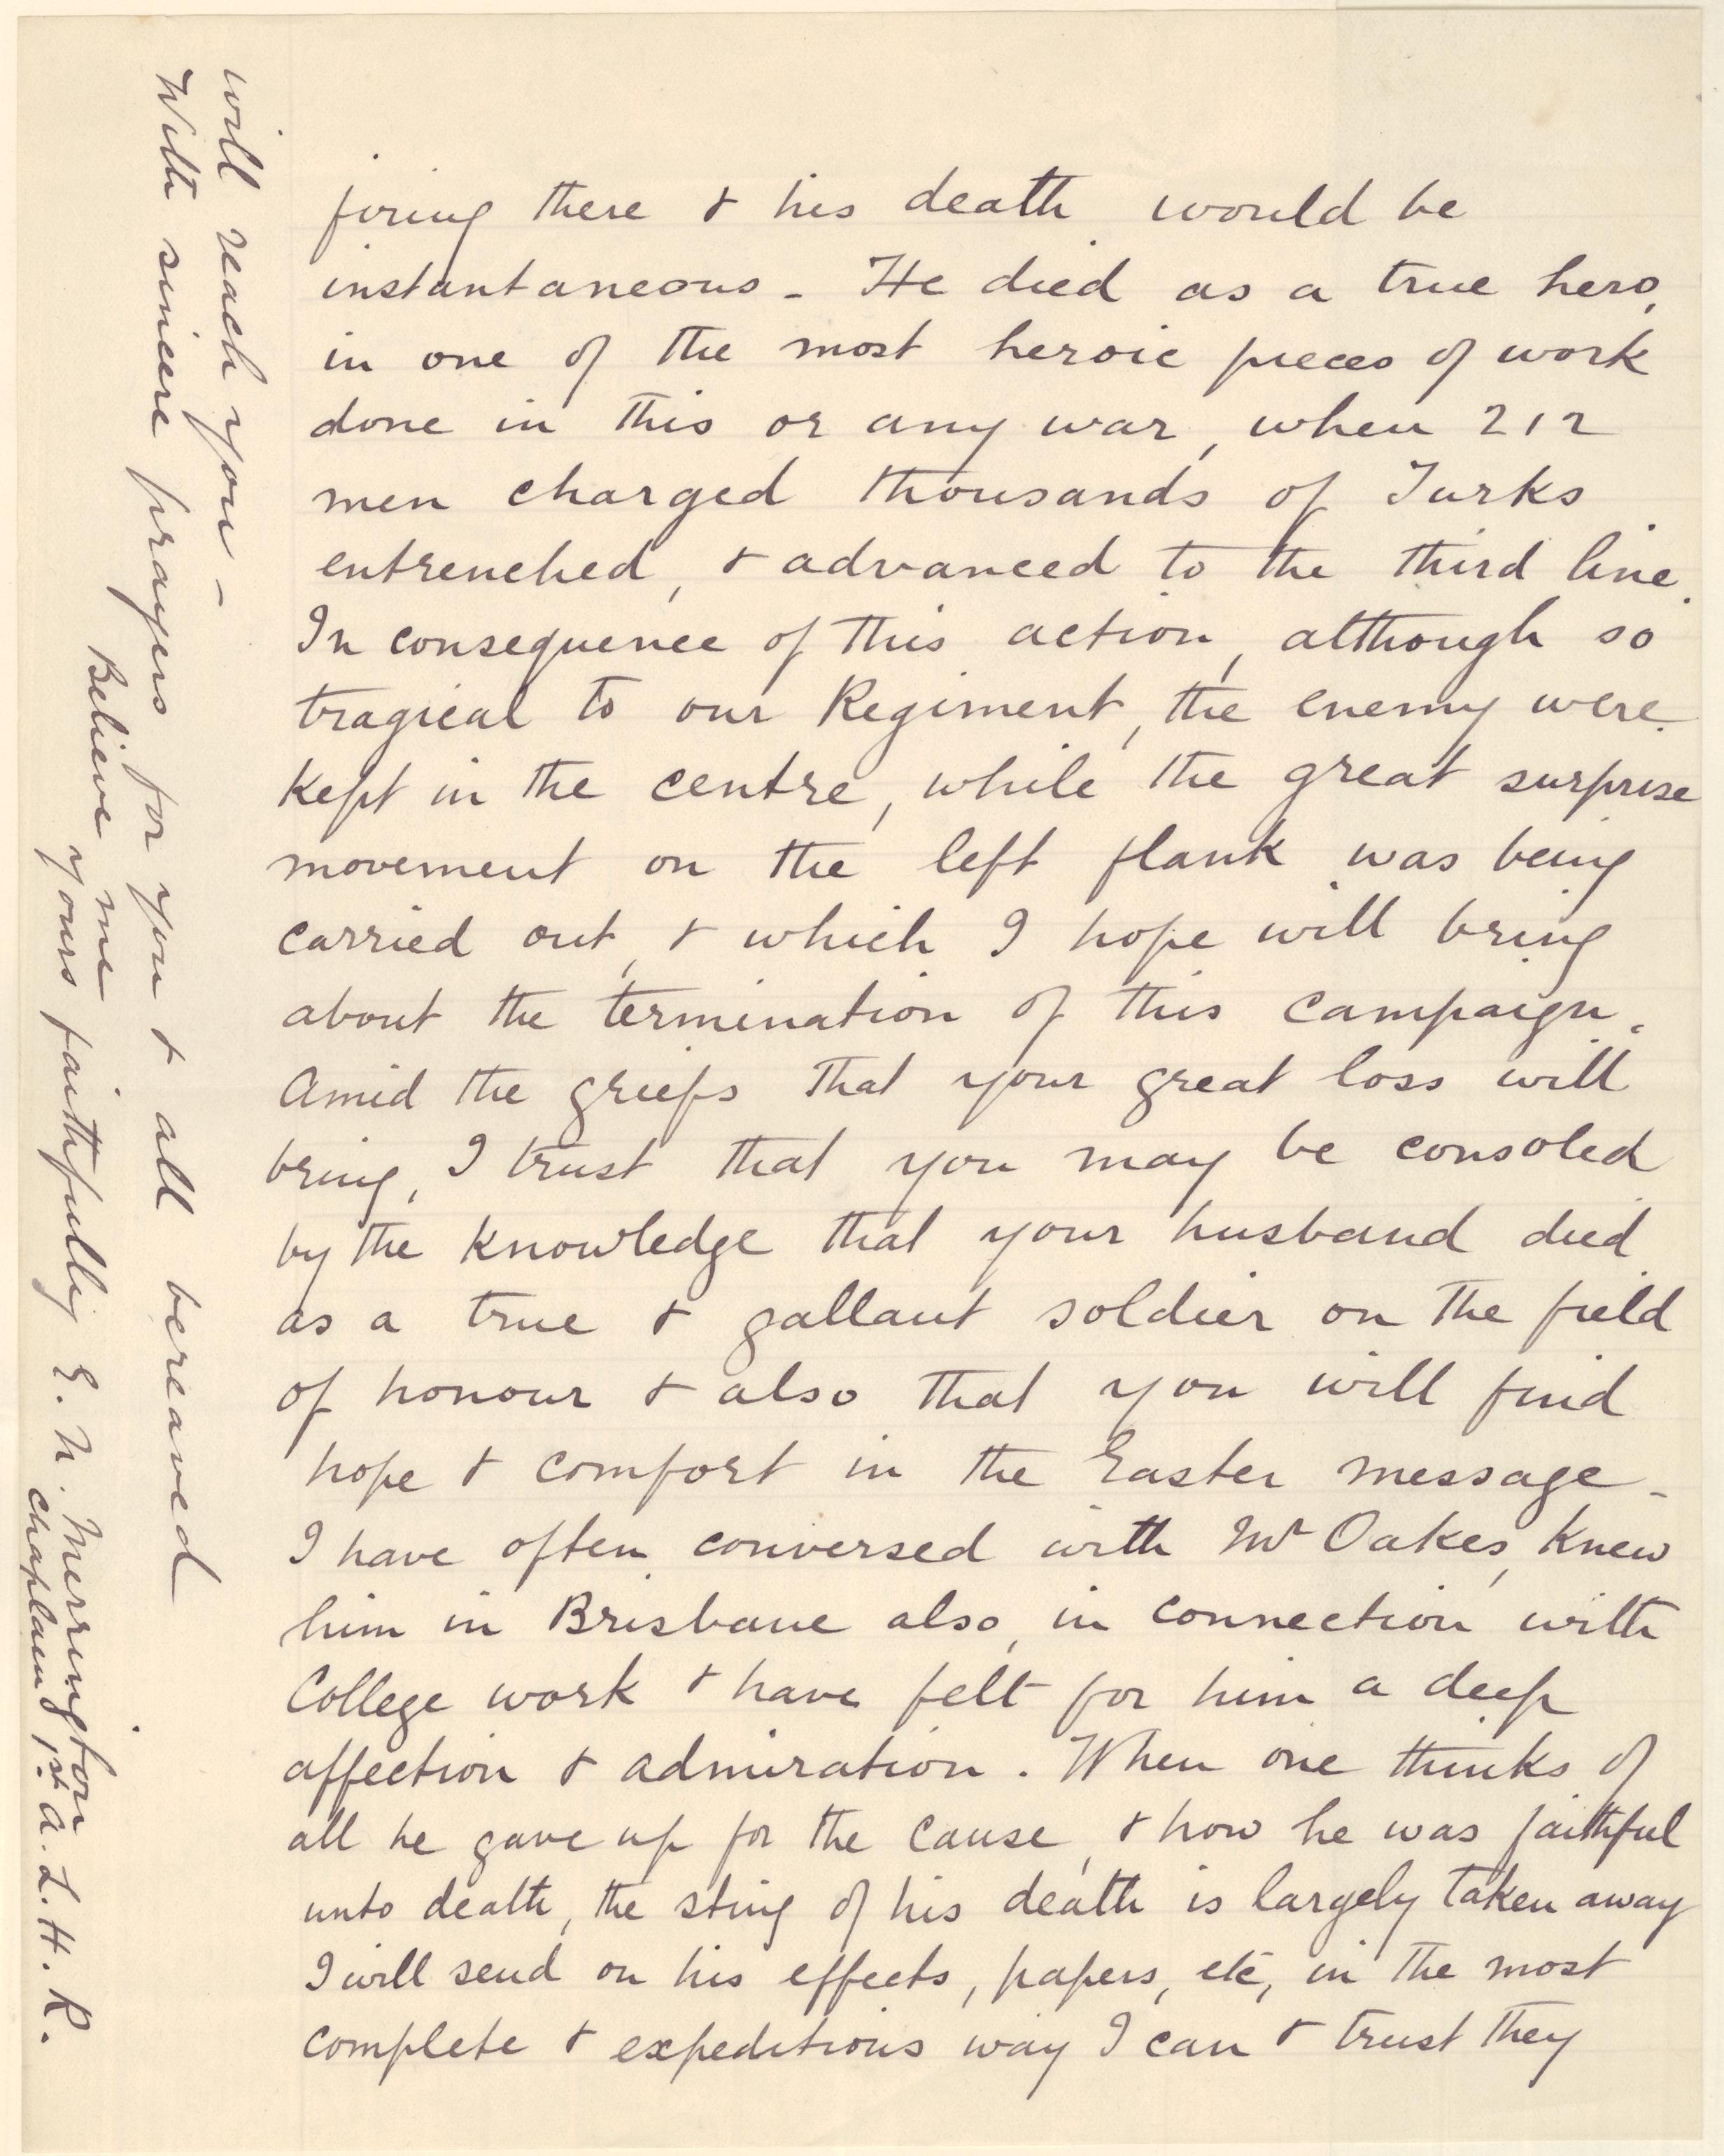 firing there & his death would be
instantaneous - He died as a true hero,
in one of the most heroic pieces of work
done in this or any war, when 212
men charged thousands of Turks
entrenched, & advanced to the third line.
In consequence of this action, although so
tragical to our Regiment, the enemy were
kept in the centre, while the great surprise
movement on the left flank was being
carried out, & which I hope will bring
about the termination of this campaign.
Amid the griefs that your great loss will
bring, I trust that you may be consoled
by the knowledge that your husband died
as a true & gallant soldier on the field
of honour & also that you will find
hope & comfort in the Easter message -
I have often conversed with Mr Oakes, knew
him in Brisbane also, in connection with
College work & have felt for him a deep
affection & admiration. When one thinks of
all he gave up for the cause, & how he was faithful
unto death, the sting of his death is largely taken away
I will send on his effects, papers, etc, in the most
complete & expeditious way I can & trust they
will reach you -
With sincere prayers for you & all bereaved
Believe me
yours faithfully E. N. Merrington
Chaplain 1st A. L. H. R.